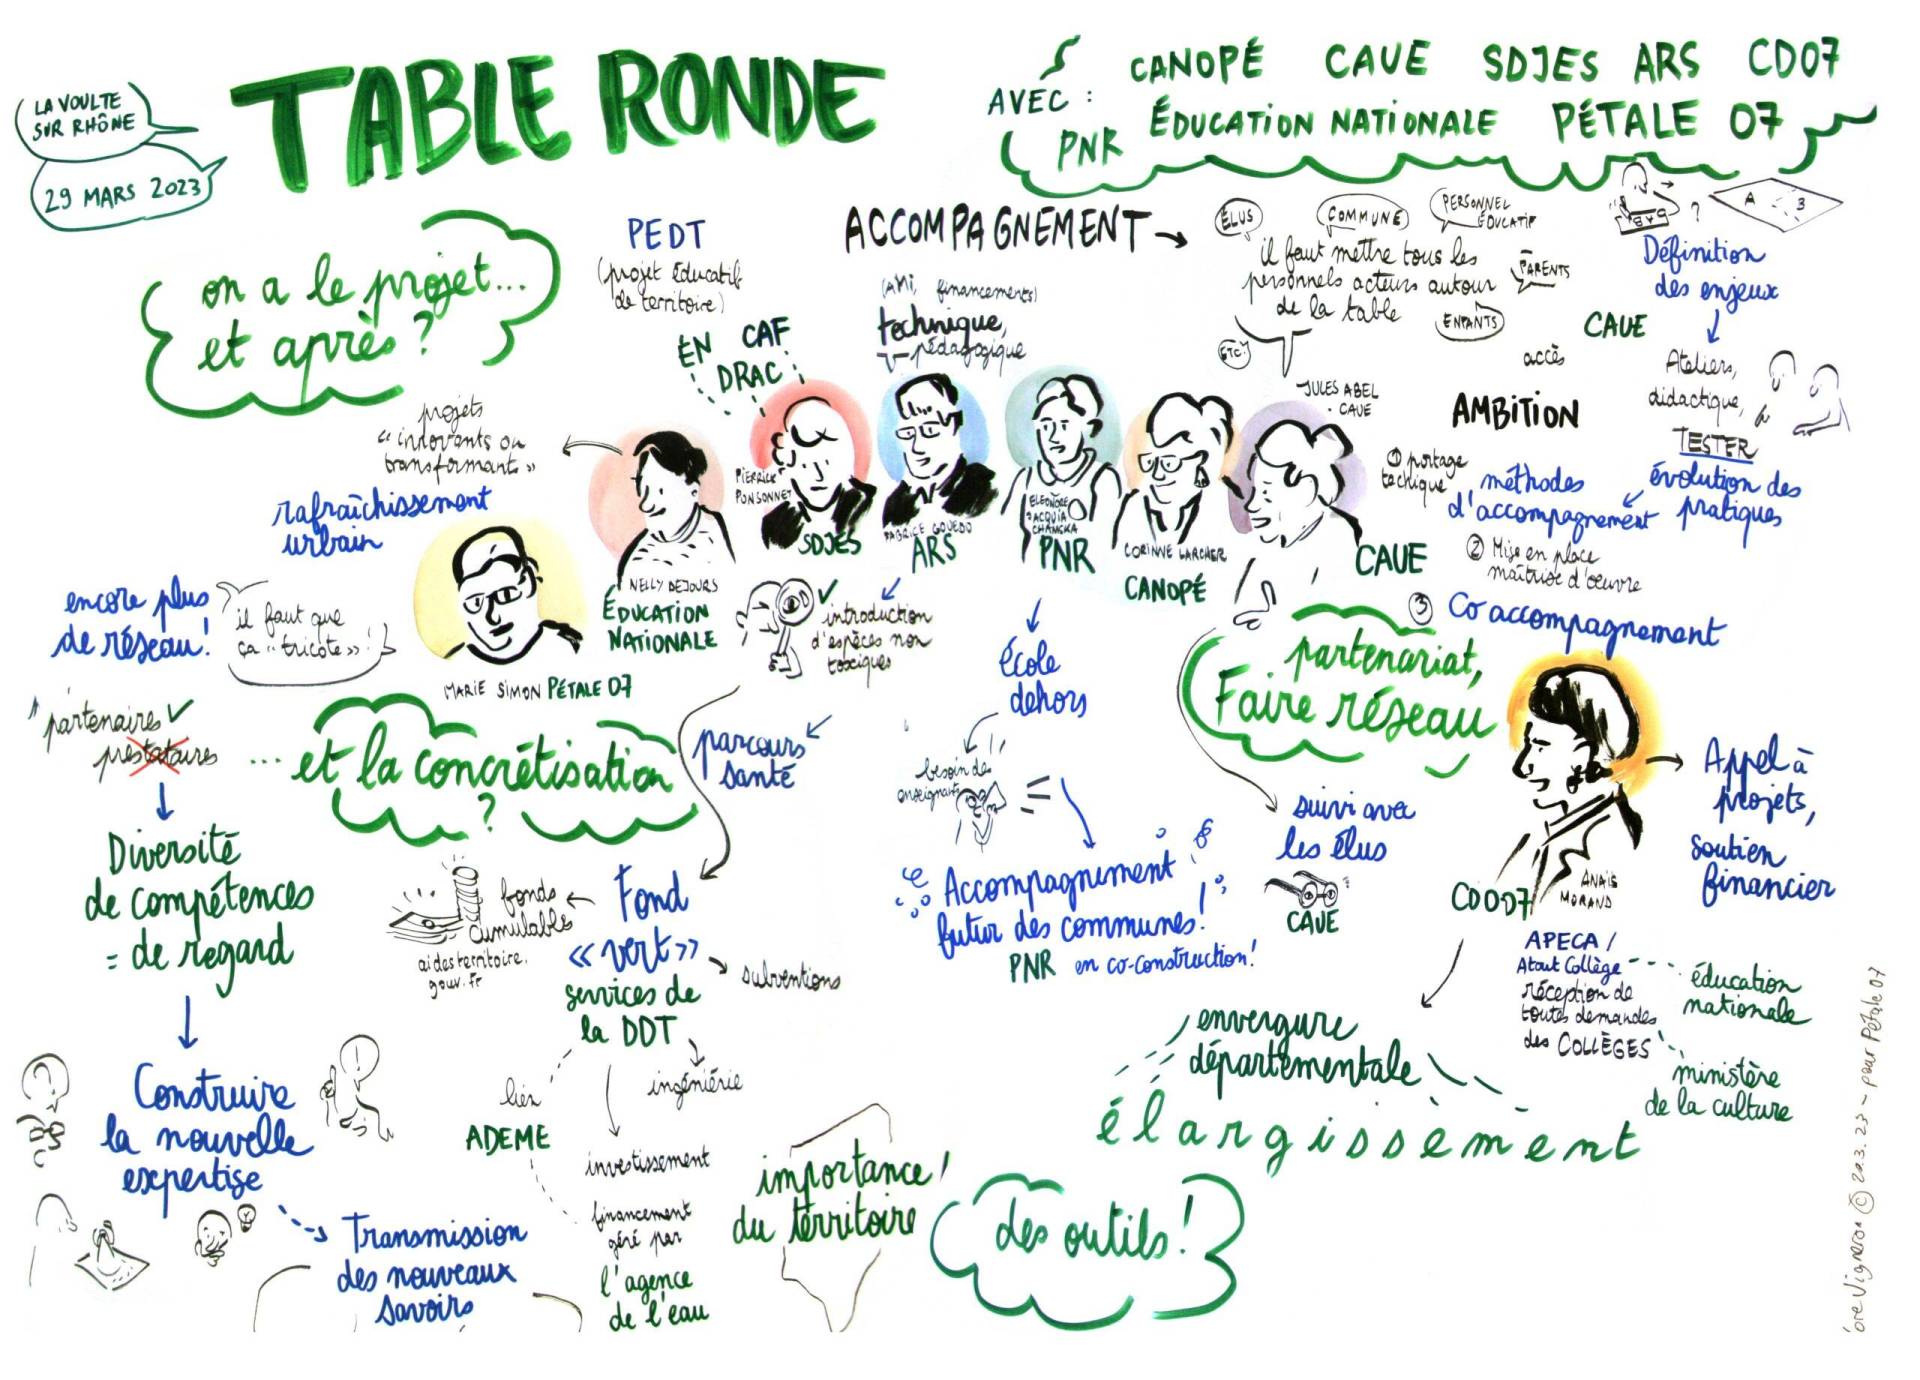 LA VOULTE
SUR RHÔNE
29 MARS 2023
TABLE RONDE
AVEC :
CANOPÉ CAUE SDJES ARS CD07
PNR ÉDUCATION NATIONALE PÉTALE 07
on a le projet...
et après ?
PEDT
(projet éducatif
de territoire)
ACCOMPAGNEMENT
(AMI, financements)
technique,
pédagogique
ÉLUS
COMMUNE
PERSONNEL
ÉDUCATIF
il faut mettre tous les
personnels acteurs autour
de la table
PARENTS
ENFANTS
ETC!
A
B
?
Définition
des enjeux
CAUE
Ateliers,
didactique,
TESTER
évolution des
pratiques
accès
AMBITION
① portage
technique
méthodes
d'accompagnement
② Mise en place
maîtrise d'œuvre
③ Co accompagnement
EN CAF
DRAC
projets
« innovants ou
transformants »
rafraîchissement
urbain
PIERRICK
PONSONNET
SDJES
FABRICE GOUEDO
ARS
ELEONORE
PNR
CORINNE LARCHER
CANOPÉ
JULES ABEL
CAUE
CAUE
NELLY DEJOURS
ÉDUCATION
NATIONALE
MARIE SIMON PÉTALE 07
encore plus
de réseau!
il faut que
ça « tricote » !
partenaires
prestataires
Diversité
de compétences
= de regard
Construire
la nouvelle
expertise
Transmission
des nouveaux
savoirs
... et la concrétisation
?
introduction
d'espèces non
toxiques
parcours
santé
Fond
« vert »
services de
la DDT
fonds
cumulables
aidesterritoire.
gouv.fr
subventions
ingéniérie
lien
ADEME
investissement
financement
géré par
l'agence
de l'eau
importance
du territoire
!
école
dehors
besoin des
enseignants
Accompagnement
futur des communes!
PNR en co-construction!
partenariat,
Faire réseau
suivi avec
les élus
CAUE
CDO07
ANAÏS
MORAND
Appel à
projets,
soutien
financier
APECA /
Atout Collège
réception de
toutes demandes
des COLLÈGES
éducation
nationale
ministère
de la culture
envergure
départementale
élargissement
des outils!
Vigneron © 29.3.23 - pour Pétale 07